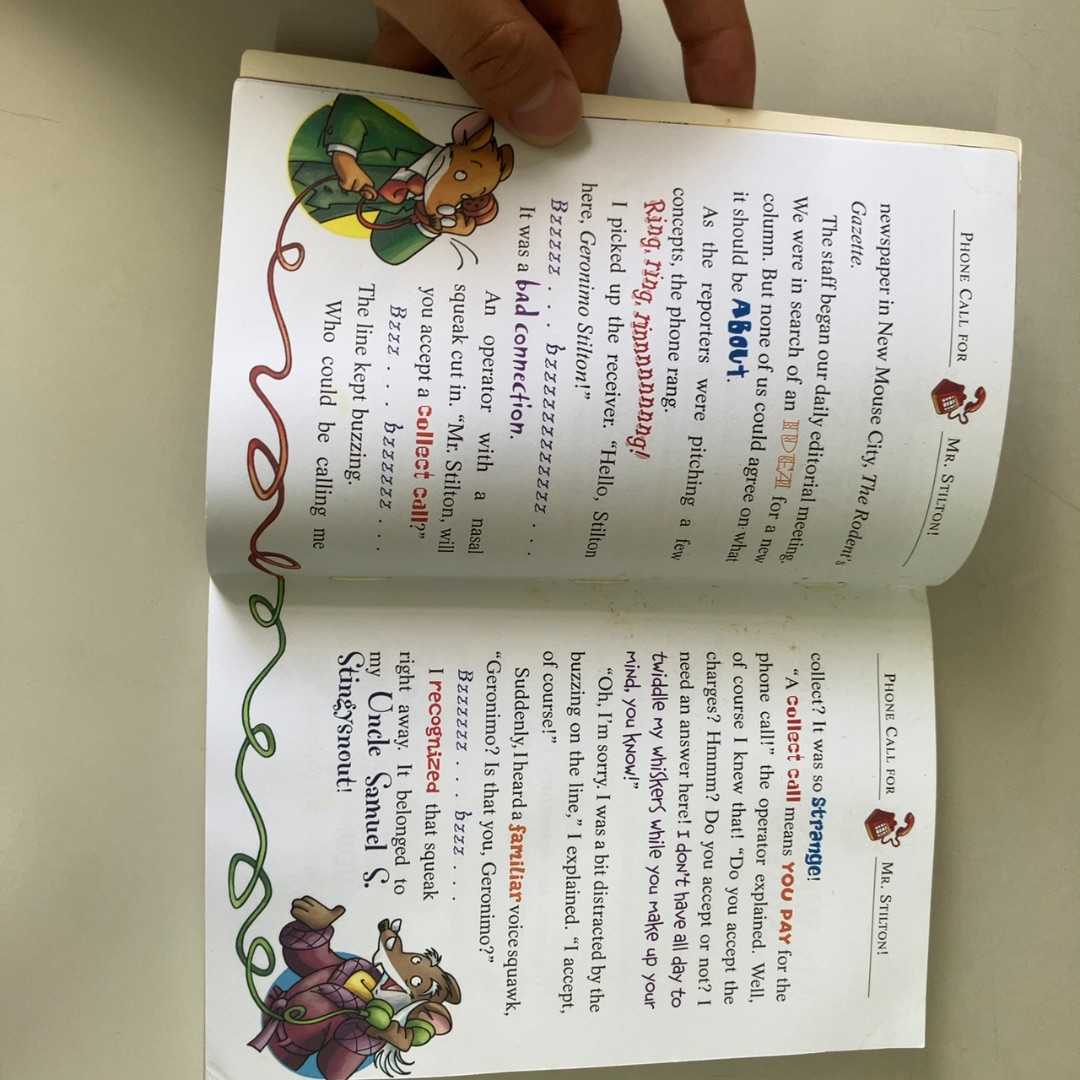 PHONE CALL FOR MR. STILTON!
newspaper in New Mouse City, The Rodent's
Gazette.
The staff began our daily editorial meeting.
We were in search of an IDEA for a new
column. But none of us could agree on what
it should be ABOUT.
As the reporters were pitching a few
concepts, the phone rang.
Ring, ring, rinnnnnnng!
I picked up the receiver. “Hello, Stilton
here, Geronimo Stilton!”
Bzzzzz . . . bzzzzzzzzzzzz . . .
It was a bad connection.
An operator with a nasal
squeak cut in. “Mr. Stilton, will
you accept a collect call?”
Bzzz . . . bzzzzzz . . .
The line kept buzzing.
Who could be calling me
PHONE CALL FOR MR. STILTON!
collect? It was so strange!
“A collect call means YOU PAY for the
phone call!” the operator explained. Well,
of course I knew that! “Do you accept the
charges? Hmmm? Do you accept or not? I
need an answer here! I don't have all day to
twiddle my whiskers while you make up your
mind, you know!”
“Oh, I'm sorry. I was a bit distracted by the
buzzing on the line,” I explained. “I accept,
of course!”
Suddenly, I heard a familiar voice squawk,
“Geronimo? Is that you, Geronimo?”
Bzzzzzz . . . bzzz . . .
I recognized that squeak
right away. It belonged to
my Uncle Samuel S.
Stingysnout!